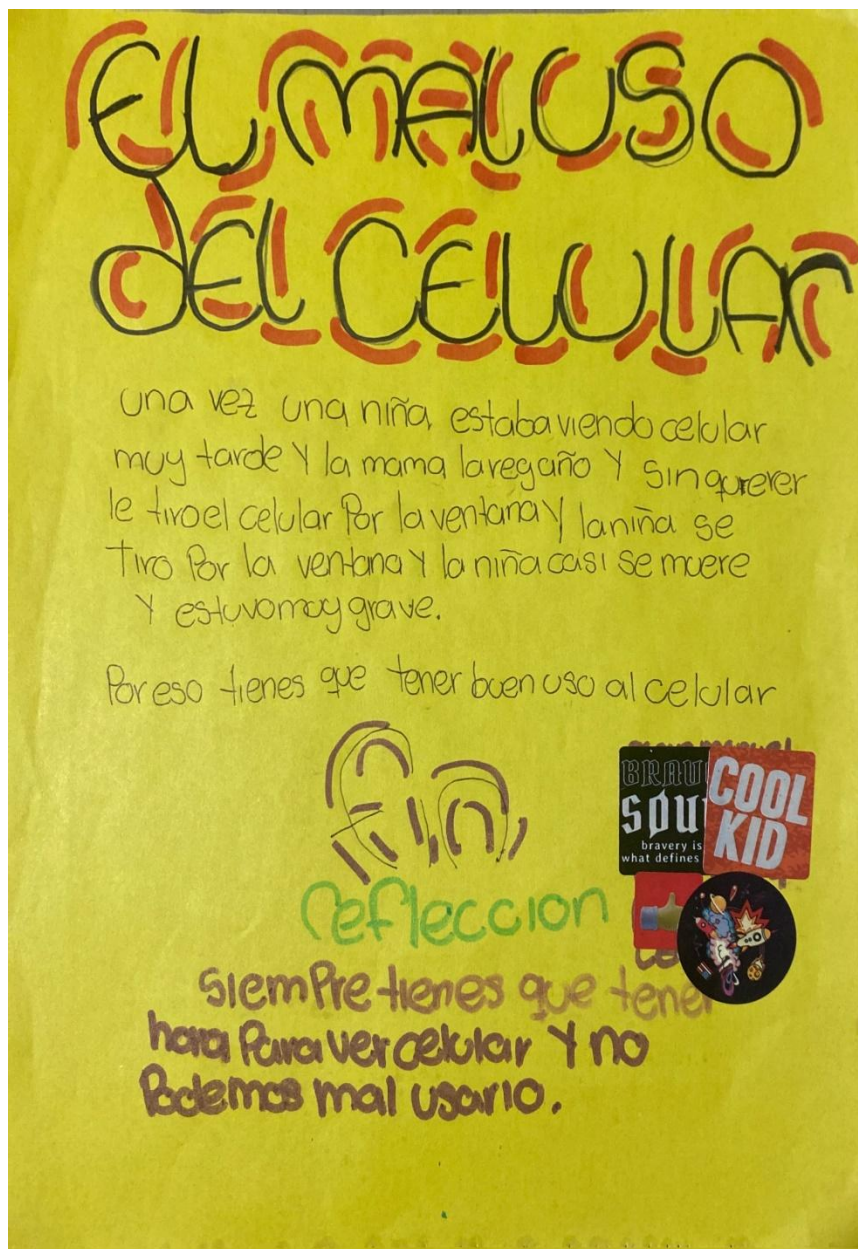 EL MAL USO
DEL CELULAR
una vez una niña estaba viendo celular
muy tarde Y la mama la regaño Y sin qurerer
le tiro el celular Por la ventana Y la niña se
Tiro Por la ventana Y la niña casi se muere
Y estuvo muy grave.
Por eso tienes que tener buen uso al celular
Fin
BRAV
SOU
bravery is
what defines
COOL
KID
refleccion
Siempre tienes que tener
hora Para ver celular Y no
Podemos mal usarlo.